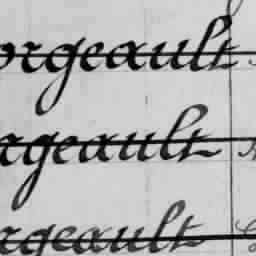 orgeault
rgeault
rgeault